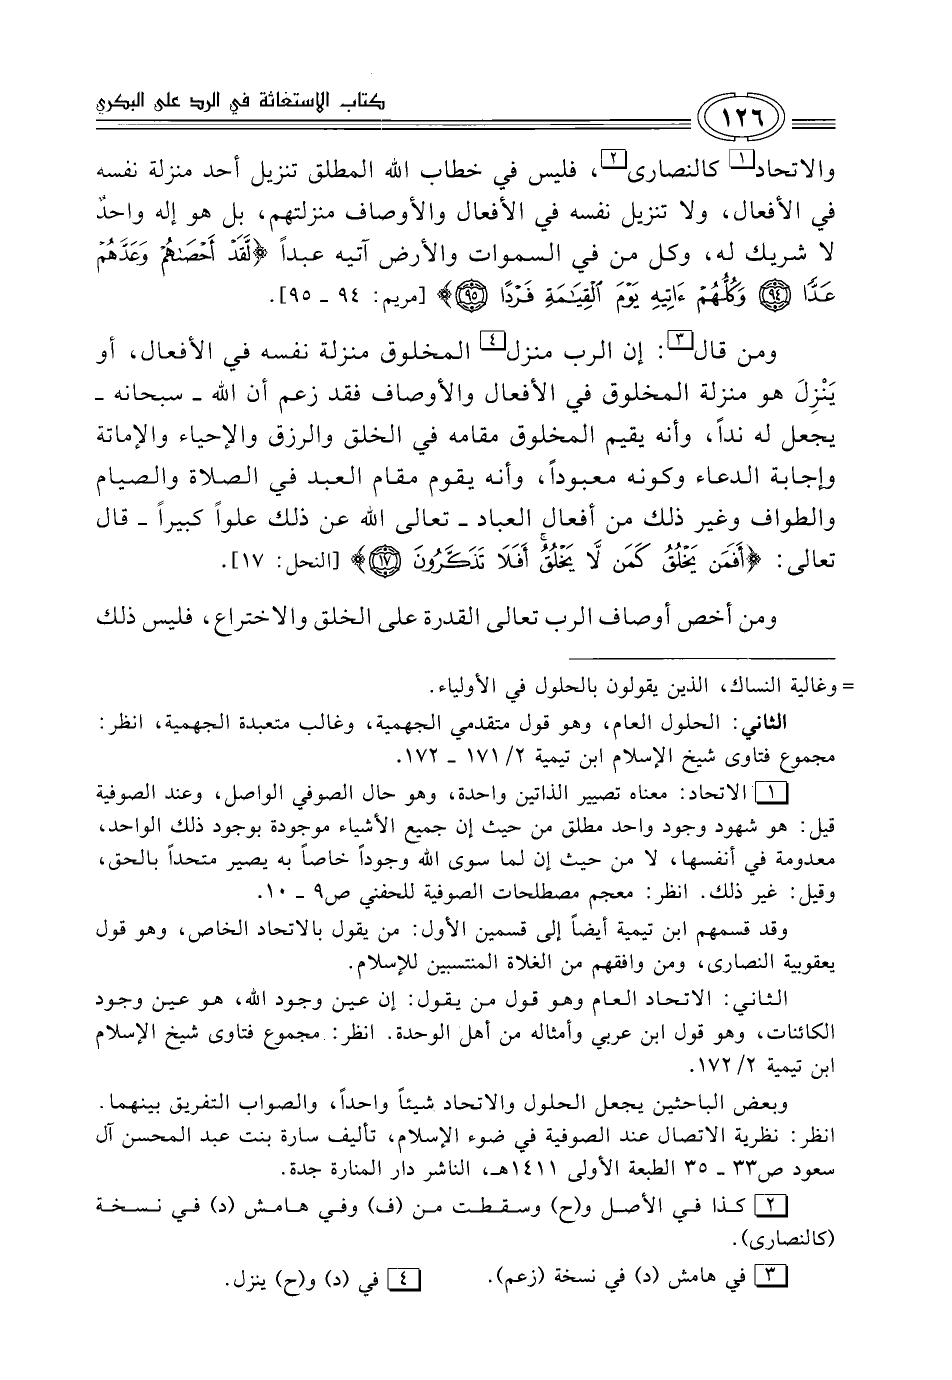 ١٢٦ كتاب الإستغاثة في الرد على البكري
والاتحاد[١] كالنصارى[٢]، فليس في خطاب الله المطلق تنزيل أحد منزلة نفسه
في الأفعال، ولا تنزيل نفسه في الأفعال والأوصاف منزلتهم، بل هو إله واحدٌ
لا شريك له، وكل من في السموات والأرض آتيه عبداً ﴿لَّقَدْ أَحْصَىٰهُمْ وَعَدَّهُمْ
عَدًّا ﴿٩٤﴾ وَكُلُّهُمْ ءَاتِيهِ يَوْمَ ٱلْقِيَٰمَةِ فَرْدًا ﴿٩٥﴾﴾ [مريم: ٩٤ ـ ٩٥].
ومن قال[٣]: إن الرب منزل[٤] المخلوق منزلة نفسه في الأفعال، أو
يَنْزِلَ هو منزلة المخلوق في الأفعال والأوصاف فقد زعم أن الله ـ سبحانه ـ
يجعل له نداً، وأنه يقيم المخلوق مقامه في الخلق والرزق والإحياء والإماتة
وإجابة الدعاء وكونه معبوداً، وأنه يقوم مقام العبد في الصلاة والصيام
والطواف وغير ذلك من أفعال العباد ـ تعالى الله عن ذلك علواً كبيراً ـ قال
تعالى: ﴿أَفَمَن يَخْلُقُ كَمَن لَّا يَخْلُقُ ۗ أَفَلَا تَذَكَّرُونَ ﴿١٧﴾﴾ [النحل: ١٧].
ومن أخص أوصاف الرب تعالى القدرة على الخلق والاختراع، فليس ذلك
= وغالية النساك، الذين يقولون بالحلول في الأولياء.
الثاني: الحلول العام، وهو قول متقدمي الجهمية، وغالب متعبدة الجهمية، انظر:
مجموع فتاوى شيخ الإسلام ابن تيمية ٢/ ١٧١ ـ ١٧٢.
[١] الاتحاد: معناه تصيير الذاتين واحدة، وهو حال الصوفي الواصل، وعند الصوفية
قيل: هو شهود وجود واحد مطلق من حيث إن جميع الأشياء موجودة بوجود ذلك الواحد،
معدومة في أنفسها، لا من حيث إن لما سوى الله وجوداً خاصاً به يصير متحداً بالحق،
وقيل: غير ذلك. انظر: معجم مصطلحات الصوفية للحفني ص٩ ـ ١٠.
وقد قسمهم ابن تيمية أيضاً إلى قسمين الأول: من يقول بالاتحاد الخاص، وهو قول
يعقوبية النصارى، ومن وافقهم من الغلاة المنتسبين للإسلام.
الثاني: الاتحاد العام وهو قول من يقول: إن عين وجود الله، هو عين وجود
الكائنات، وهو قول ابن عربي وأمثاله من أهل الوحدة. انظر: مجموع فتاوى شيخ الإسلام
ابن تيمية ٢/ ١٧٢.
وبعض الباحثين يجعل الحلول والاتحاد شيئاً واحداً، والصواب التفريق بينهما.
انظر: نظرية الاتصال عند الصوفية في ضوء الإسلام، تأليف سارة بنت عبد المحسن آل
سعود ص٣٣ ـ ٣٥ الطبعة الأولى ١٤١١هـ، الناشر دار المنارة جدة.
[٢] كذا في الأصل و(ح) وسقطت من (ف) وفي هامش (د) في نسخة
(كالنصارى).
[٣] في هامش (د) في نسخة (زعم). [٤] في (د) و(ح) ينزل.